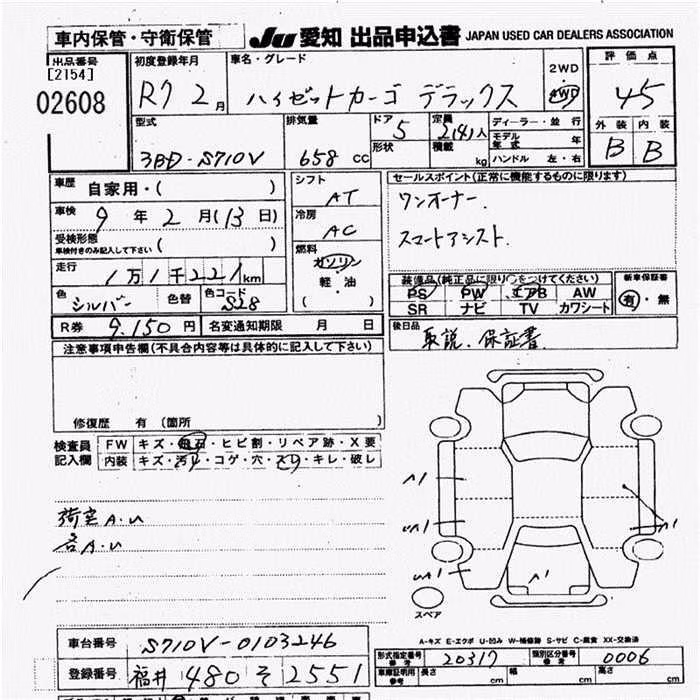 車内保管・守衛保管 Ju 愛知 出品申込書 JAPAN USED CAR DEALERS ASSOCIATION
出品番号 初度登録年月 車名・グレード 2WD 評価点
[2154] 02608 R7 2月 ハイゼットカーゴ デラックス 4WD 4.5
型式 排気量 ドア 定員 ディーラー・並行 外装 内装
3BD-S710V 658cc 5 2(4)人 モデル年式 B B
形状 積載 kg ハンドル 左・右
車歴 自家用・( ) シフト AT セールスポイント(正常に機能するものに限ります)
車検 9年2月(13日) 冷房 AC ワンオーナー.
受検形態 ( ) スマートアシスト.
車検付きのみ記入して下さい 燃料 ガソリン
走行 1万1千221km 軽・油 装備品(純正品に限り○をつけてください) 新車保証書
色 シルバー 色替 色コード S28 ( ) PS PW エアB AW 有・無
SR ナビ TV カワシート
R券 9,150円 名変通知期限 月 日 後日品 取説.保証書.
注意事項申告欄(不具合内容等は具体的に記入して下さい)
修復歴 有 (箇所 )
検査員 FW キズ・飛石・ヒビ割・リペア跡・X要
記入欄 内装 キズ・汚レ・コゲ・穴・スレ・キレ・破レ
荷室A.U
各A.U
スペア
A-キズ E-エクボ U-凹み W-補修跡 S-サビ C-腐食 XX-交換済
車台番号 S710V-0103246
登録番号 福井 480 そ 2551
型式指定番号 参考 20317 類別区分番号 参考 0006
車庫証明用 参考 長さ cm 幅 cm 高さ cm